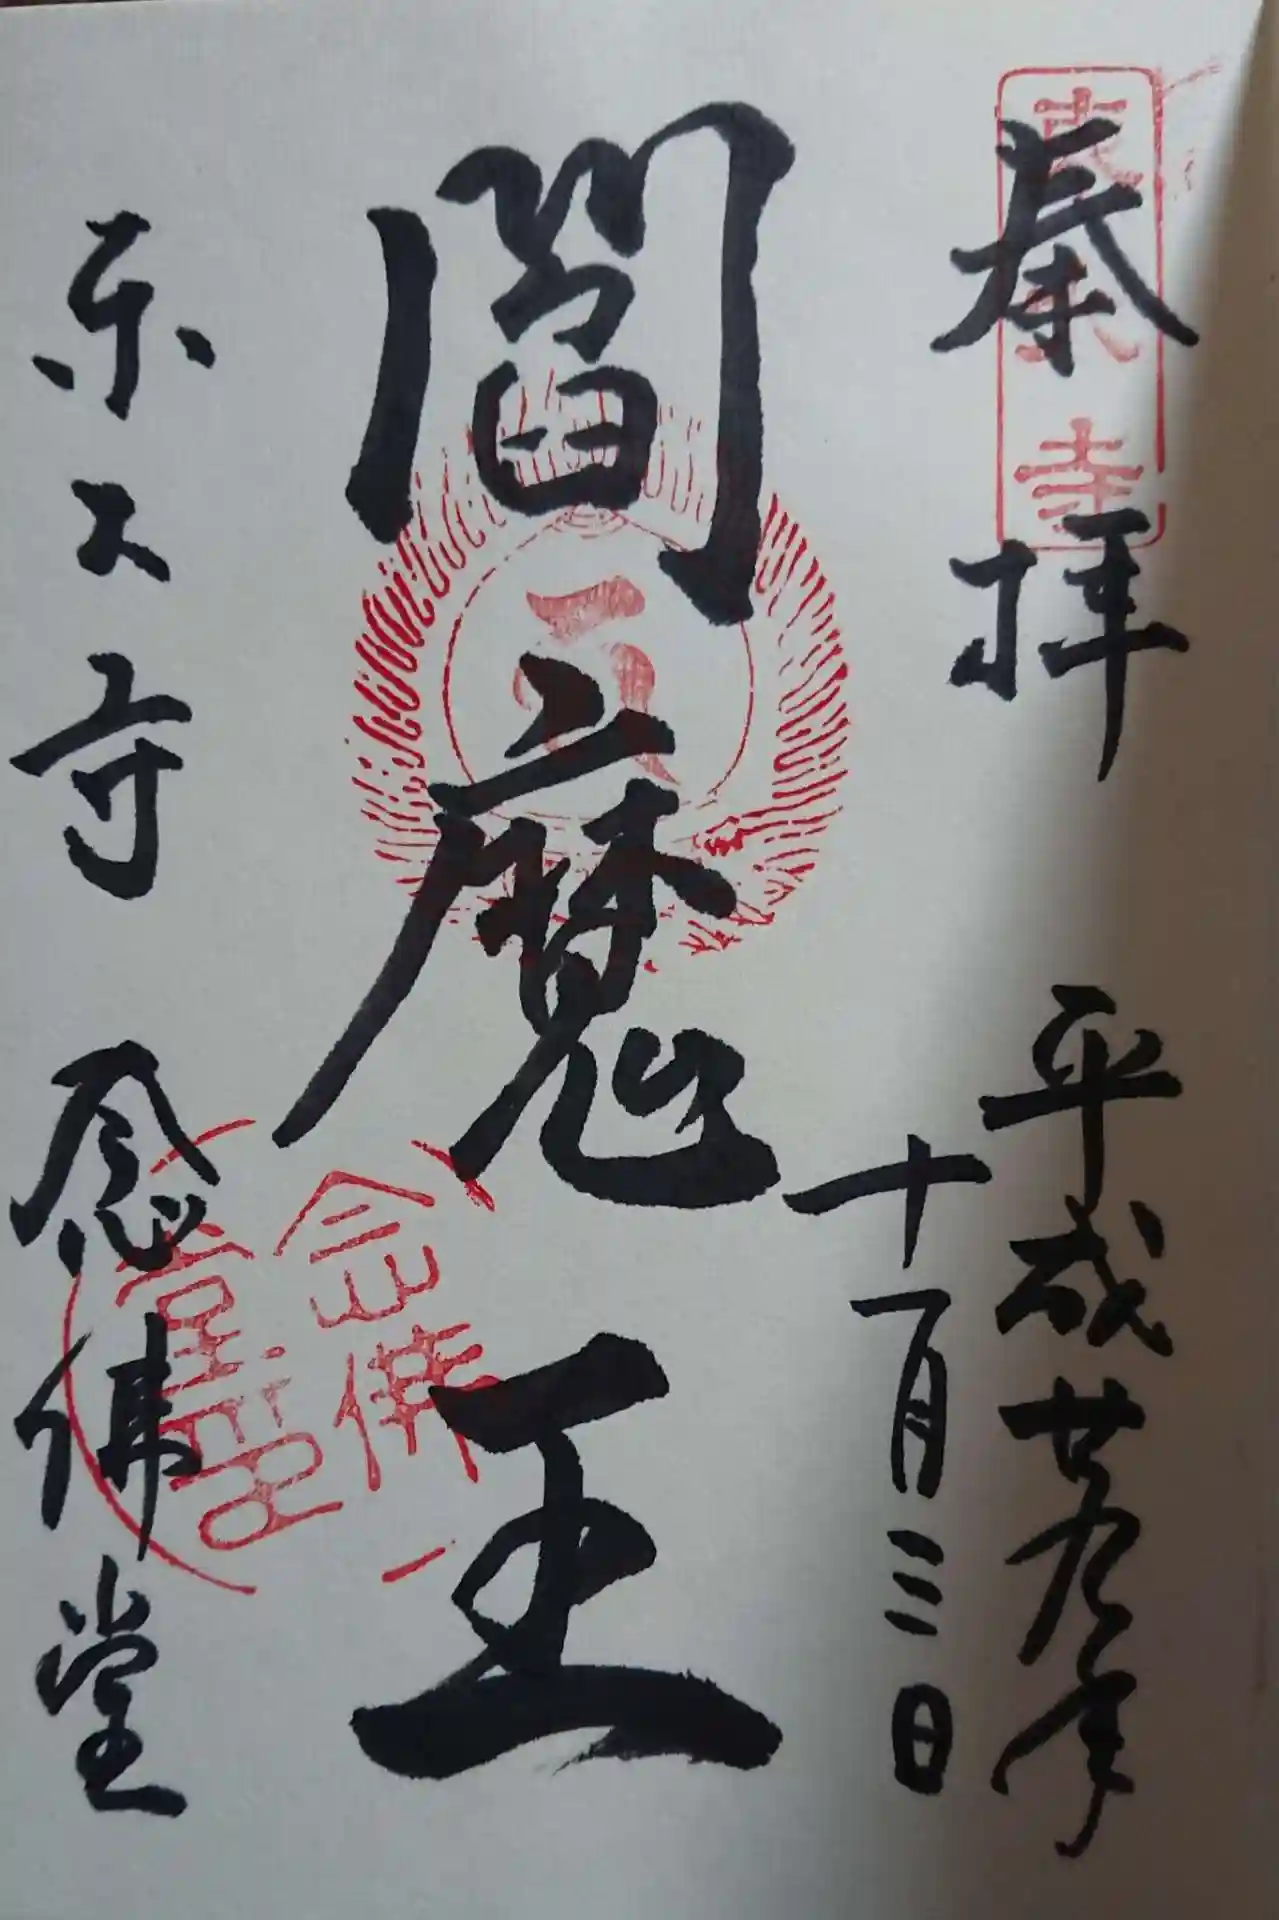 奉拝　平成廿九年
十月三日
閻魔王
東大寺　念佛堂
東大寺
念佛
堂印